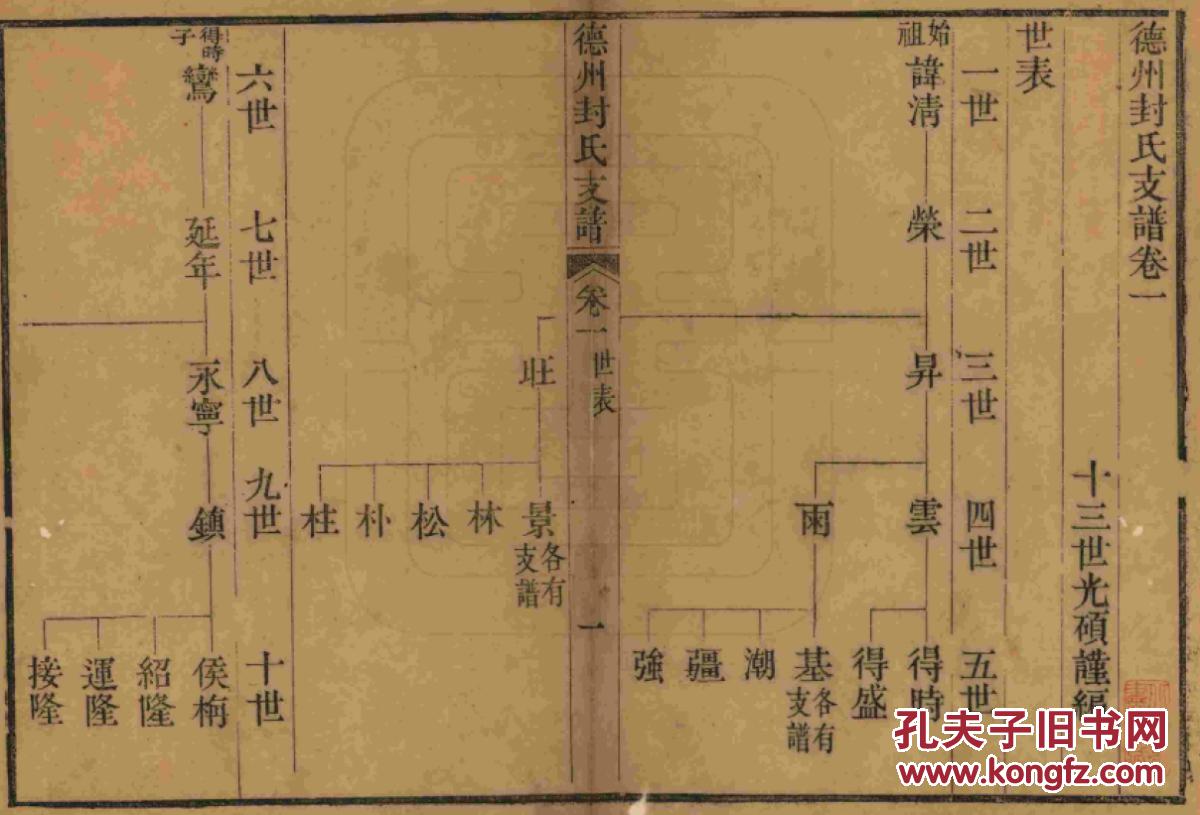 德州封氏支譜卷一
十三世光碩謹編
世表
一世 二世 三世 四世 五世
始祖 諱清 榮 昇 雲 得時
得盛
雨 基 各有支譜
潮
疆
強
德州封氏支譜 卷一 世表 一
旺 景 各有支譜
林
松
朴
柱
六世 七世 八世 九世 十世
得時子 鸞 延年 永寧 鎮 侯栴
紹隆
運隆
接隆
孔夫子旧书网
www.kongfz.com